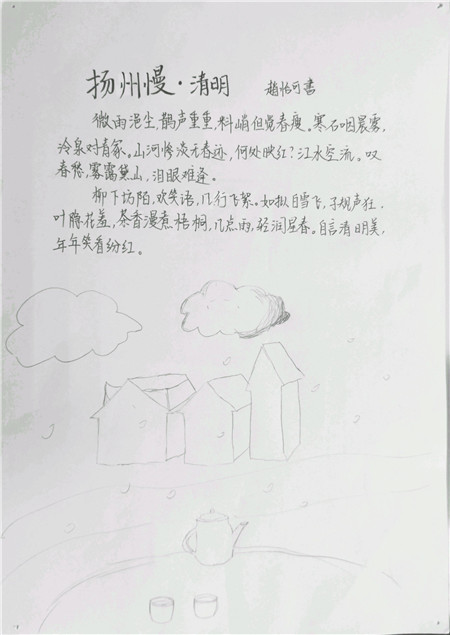 扬州慢·清明 趙怡可書
微雨浥尘,鹊声重重,料峭但觉春瘦。寒石咽晨雾,
冷泉对青冢。山河惨淡无春迹,何处映红?江水空流。叹
春愁,雾霭黛山,泪眼难逢。
柳下坊陌,欢笑语,几行飞絮。如拟白雪飞,子规声狂,
叶醉花羞,茶香漫煮梧桐,几点雨,轻润屋春。自言清明美,
年年笑看纷红。